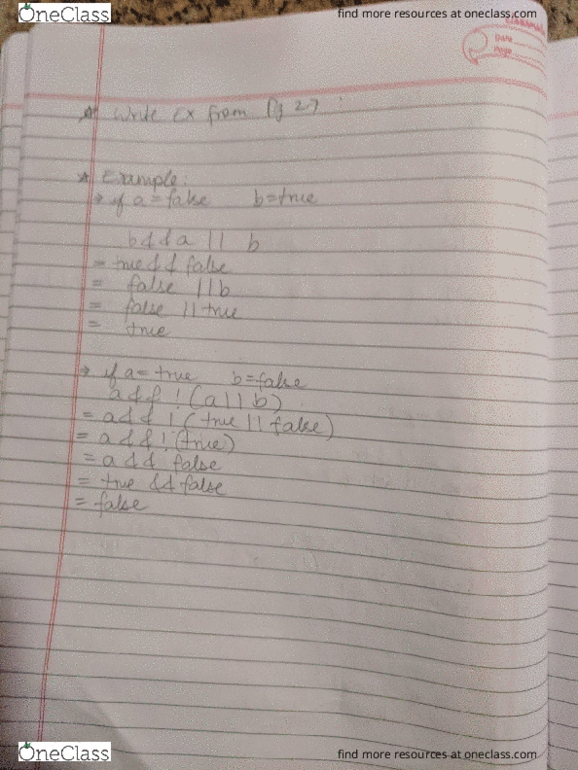 OneClass
find more resources at oneclass.com
Date
Page
* Write Ex from Pg 27 :
* Example:
→ if a = false b = true
b && a || b
= true && false
= false || b
= false || true
= true
→ if a = true b = false
a && ! (a || b)
= a && ! (true || false)
= a && ! (true)
= a && false
= true && false
= false
OneClass
find more resources at oneclass.com